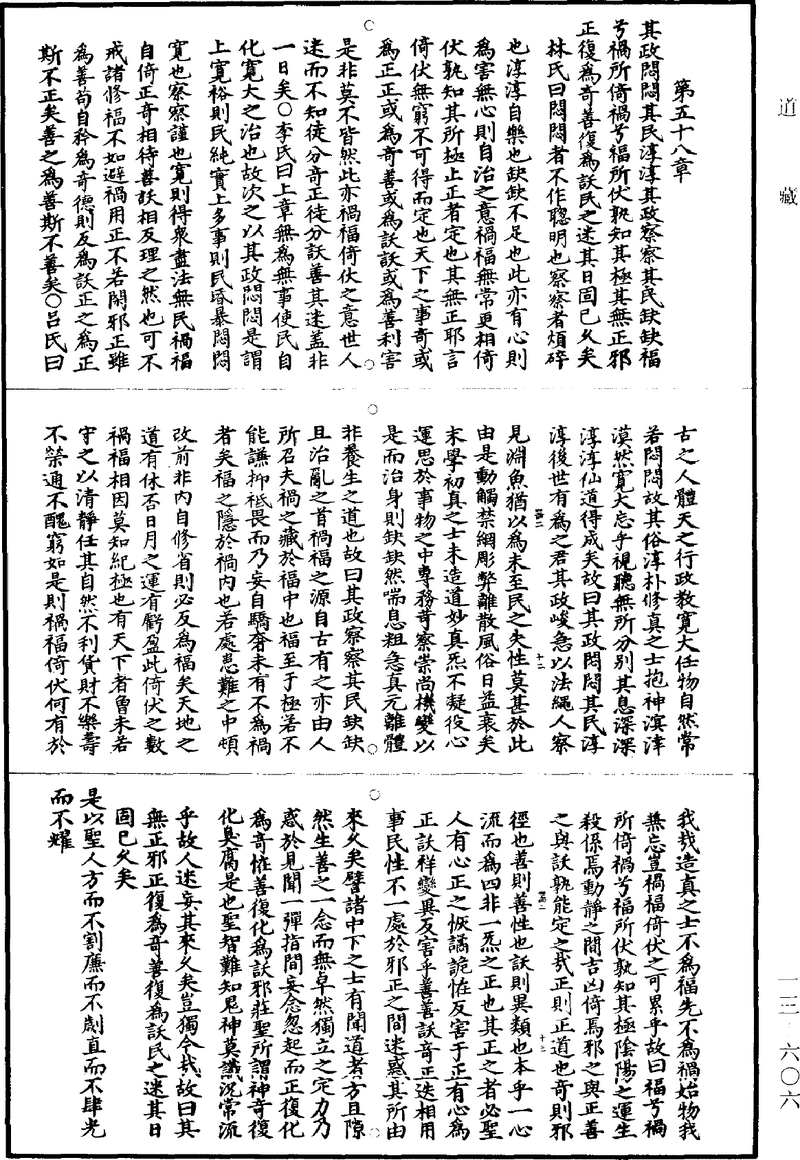 道藏
第五十八章
其政悶悶其民淳淳其政察察其民缺缺福
兮禍所倚禍兮福所伏孰知其極其無正邪
正復為奇善復為訞民之迷其日固已久矣
林氏曰悶悶者不作聰明也察察者煩碎
也淳淳自樂也缺缺不足也此亦有心則
為害無心則自治之意禍福無常更相倚
伏孰知其所極止正者定也其無正耶言
倚伏無窮不可得而定也天下之事奇或
為正正或為奇善或為訞訞或為善利害
是非莫不皆然此亦禍福倚伏之意世人
迷而不知徒分奇正徒分訞善其迷蓋非
一日矣○李氏曰上章無為無事使民自
化寬大之治也故次之以其政悶悶是謂
上寬裕則民純實上多事則民昏暴悶悶
寬也察察謹也寬則得衆盡法無民禍福
自倚正奇相待善訞相反理之然也可不
戒諸修福不如避禍用正不若閑邪正雖
為善苟自矜為奇德則反為訞正之為正
斯不正矣善之為善斯不善矣○呂氏曰
古之人體天之行政教寬大任物自然常
若悶悶故其俗淳朴修真之士抱神滇涬
漠然寬大忘乎視聽無所分別其息深深
淳淳仙道得成矣故曰其政悶悶其民淳
淳後世有為之君其政峻急以法繩人察
見淵魚猶以為未至民之失性莫甚於此
由是動觸禁網彫弊離散風俗日益衰矣
末學初真之士未造道妙真炁不凝役心
運思於事物之中專務苛察崇尚機變以
是而治身則缺缺然喘息粗急真元離體
非養生之道也故曰其政察察其民缺缺
且治亂之首禍福之源自古有之亦由人
所召夫禍之藏於福中也福至于極若不
能謙抑祗畏而乃妄自驕奢未有不為禍
者矣福之隱於禍內也若處患難之中頓
改前非內自修省則必反為福矣天地之
道有休否日月之運有虧盈此倚伏之數
禍福相因莫知紀極也有天下者曽未若
守之以清靜任其自然不利貨財不樂壽
不榮通不醜窮如是則禍福倚伏何有於
我哉造真之士不為福先不為禍始物我
兼忘豈禍福倚伏之可累乎故曰福兮禍
所倚禍兮福所伏孰知其極陰陽之運生
殺係焉動靜之間吉凶倚焉邪之與正善
之與訞孰能定之哉正則正道也奇則邪
徑也善則善性也訞則異類也本乎一心
流而為四非一炁之正也其正之者必聖
人有心正之恢譎詭怪反害于正有心為
正訞祥變異反害乎善善訞奇正迭相用
事民性不一處於邪正之間迷惑其所由
來久矣譬諸中下之士有聞道者方且隙
然生善之一念而無卓然獨立之定力乃
惑於見聞一彈指間妄念忽起而正復化
為奇怪善復化為訞邪莊聖所謂神奇復
化臭腐是也聖智難知鬼神莫識況常流
乎故人迷妄其來久矣豈獨今哉故曰其
無正邪正復為奇善復為訞民之迷其日
固已久矣
是以聖人方而不割廉而不劌直而不肆光
而不耀
一三·六〇六